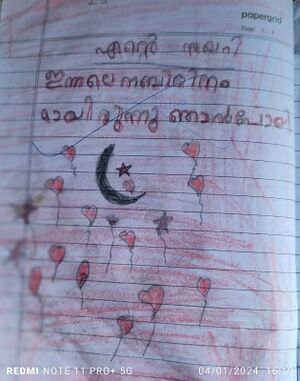 papergrid
Date: / /
എന്റെ ഡയറി
ഇന്നലെ നബിദിനം
മായിരുന്നു ഞാൻപോയി
REDMI NOTE 11 PRO+ 5G 04/01/2024 16:10